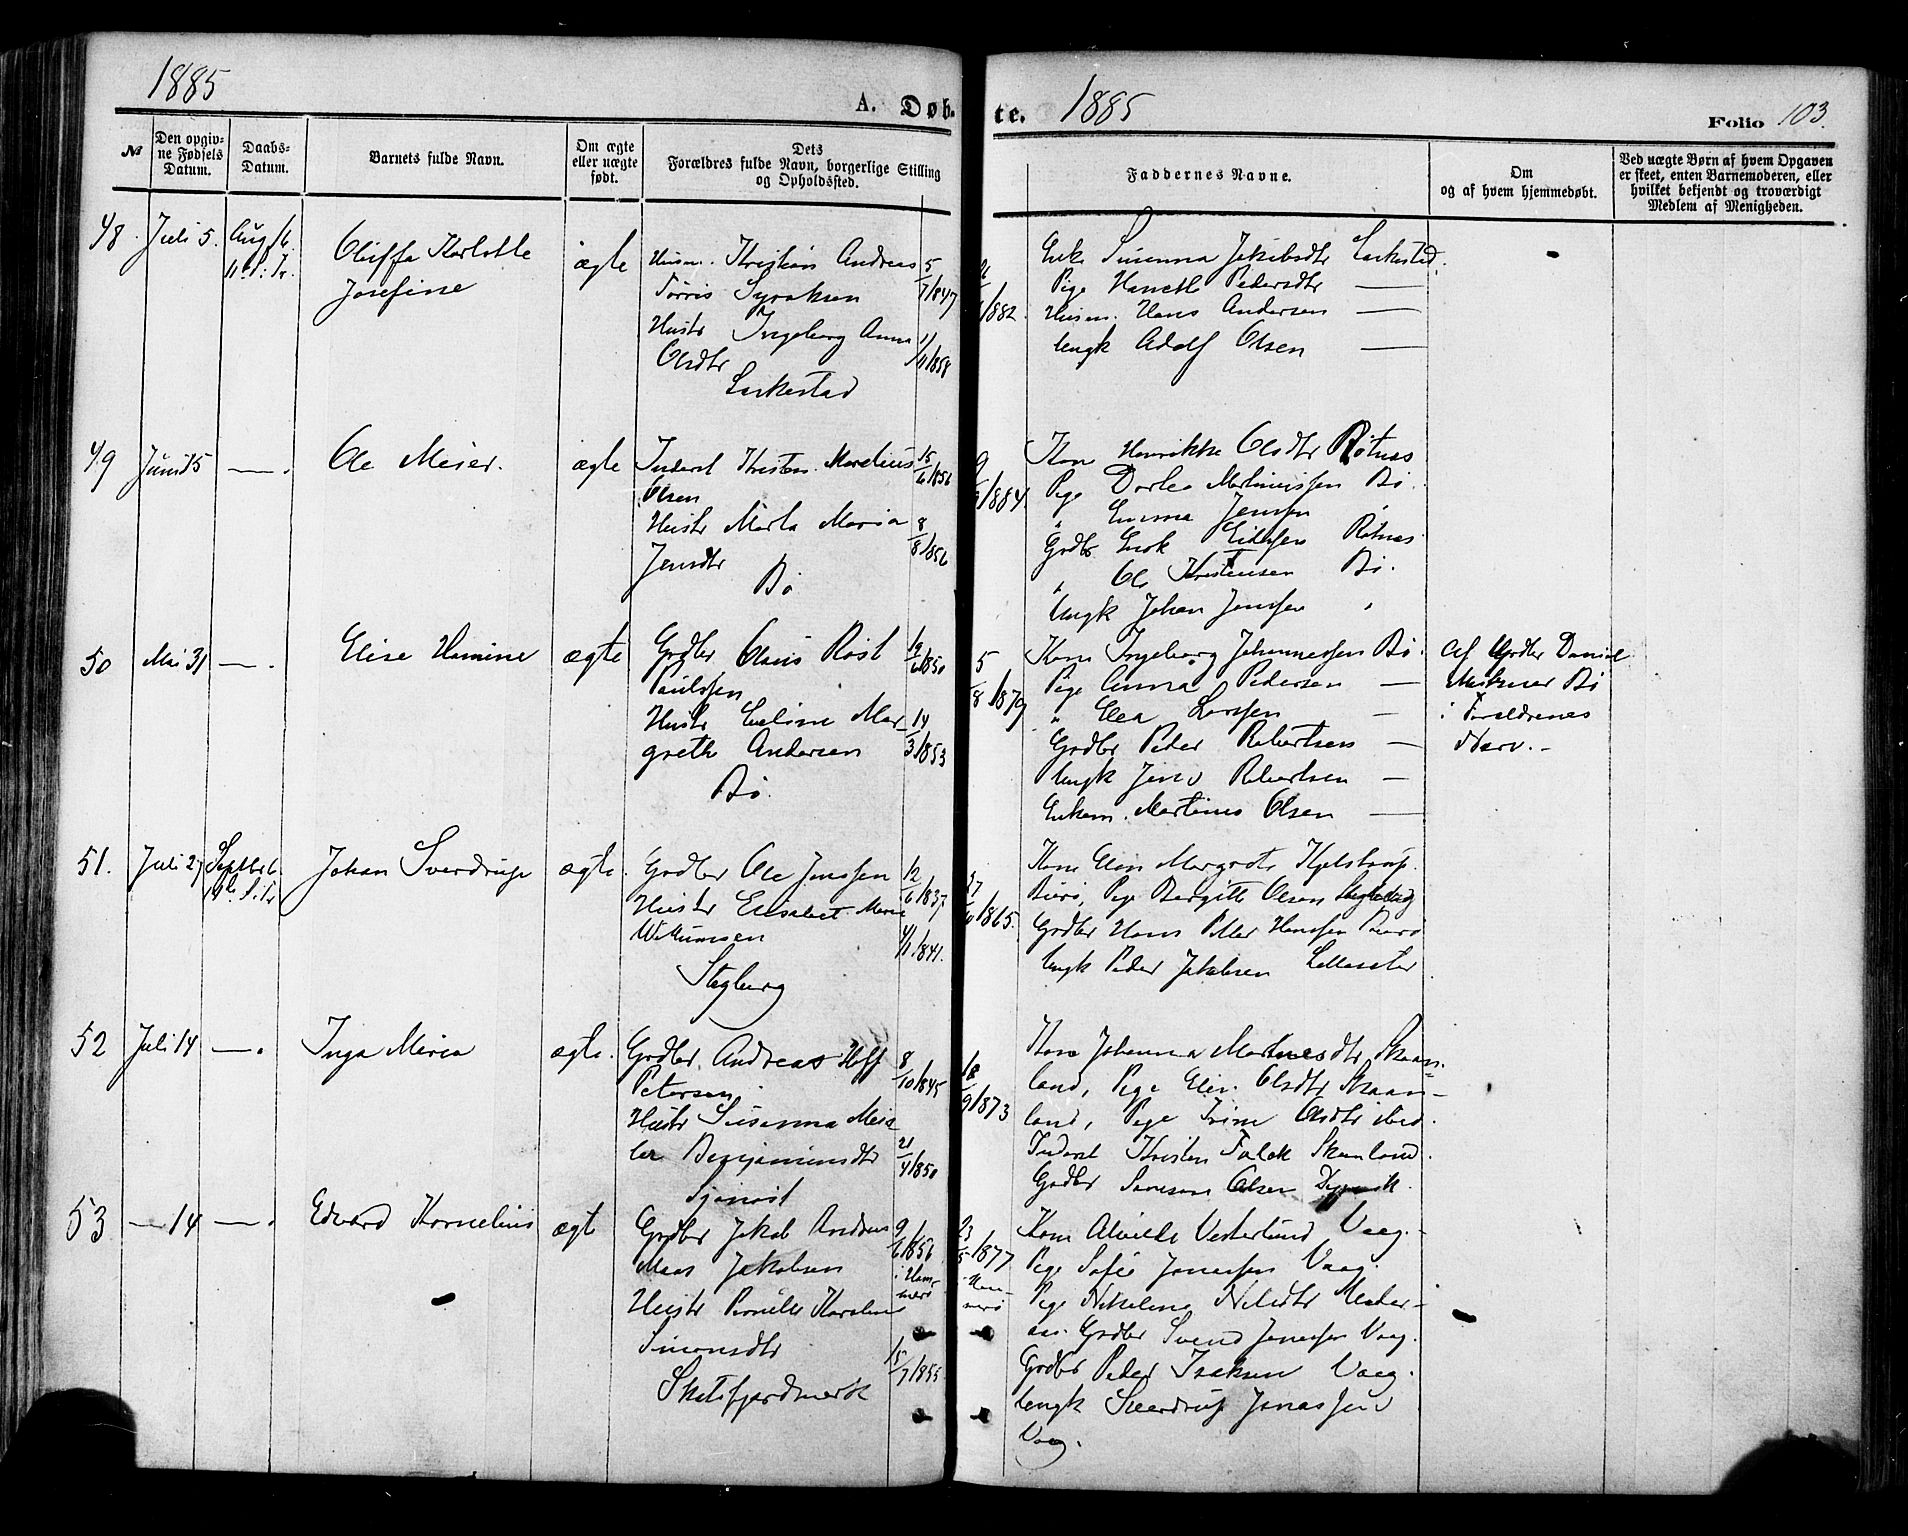 1885
A. Døb-
te.
1885
Folio 103.
№
Den opgiv-
ne Fødsels
Datum.
Daabs-
Datum.
Barnets fulde Navn.
Om ægte
eller uægte
født.
Dets
Forældres fulde Navn, borgerlige Stilling
og Opholdssted.
Faddernes Navne.
Om
og af hvem hjemmedøbt.
Ved uægte Børn af hvem Opgaven
er skeet, enten Barnemoderen, eller
hvilket bekjendt og troværdigt
Medlem af Menigheden.
48.
Juli 5.
Aug 16.
11te S. Tr.
Oluffa Karlotte
Josefine
ægte
Husm. Kristian Andreas
Tørris Syraksen
Hustr Ingeborg Anna
Olsdtr
Lurkestad
5/7 1847
1/11 1858
1882.
Enke Susanna Jakobsdtr Lurkestad.
Pige Hanette Pedersdtr —
Husm. Hans Andersen —
Ungk Adolf Olsen —
49
Juni 15
— .
Ole Meier.
ægte
Inderst Kristen Marelius
Olsen
Hustr Marta Maria
Jensdtr
Bø
15/6 1856
8/8 1856
1884.
Kone Henrikke Olsdtr Røtnes
Pige Dorlea Martinussen Bø.
" Emma Jenssen "
Grdbr Enok Eidissen Røtnes
" Ole Kristensen Bø.
Ungk Johan Jenssen "
50
Mai 31
— .
Elise Hamine
ægte
Grdbr Claus Røst
Paulssen
Hustr Eveline Mar-
grethe Andersen
Bø.
12/6 1850
14/3 1853
5/8 1879
Kone Ingeborg Johannessen Bø.
Pige Anna Pedersen —
" Elea Larssen —
Grdbr Peder Robertsen —
Ungk Jens Robertsen —
Enkem. Martinus Olsen —
Af Grdbr Daniel
Bø
i Forældrenes
Nærv. —
51.
Juli 27
Septbr 6
S. Tr
Johan Sverdrup
ægte.
Grdbr Ole Jenssen
Hustr Elisabet Marie
Willumsen
Stegberg
12/6 1837
4/1 1841.
1865.
Kone Elen Margrete Kjelstrup
Buerø, Pige Bergitte Olsen Stegberg
Grdbr Hans Peter Hanssen Buerø
Ungk Peder Jakobsen
52
Juli 14
— .
Inga Maria
ægte.
Grdbr. Andreas Hoff
Petersen.
Hustr Susanna Meie
ler Benjaminsdtr
Sjonøst
8/10 1845
21/4 1850
18/9 1873
Kone Johanna Martinesdtr Skaan-
land, Pige Elen Olsdtr Skaan-
land, Pige Trine Olsdtr ibid.
Inderst Kristen Falck Skanland.
Grdbr Samson Olsen Dypvik.
53
— 14
— .
Edvard Kornelius
ægte
Grdbr Jakob Andreas
Maas Jakobsen
Hustr Pernille Karoline
Simonsdtr
Skotsfjordmark
9/6 1856
i Ham-
merø
15/7 1855
23/5 1877
i Ham-
merø
Kone Alvilde Vesterlund Vaag.
Pige Sofie Jonassen Vaag.
Pige Nikoline Nilsdtr
Grdbr Svend Jonassen Vaag.
Grdbr Peder Isaksen Vaag.
Ungk Sverdrup Jonassen
Vaag.